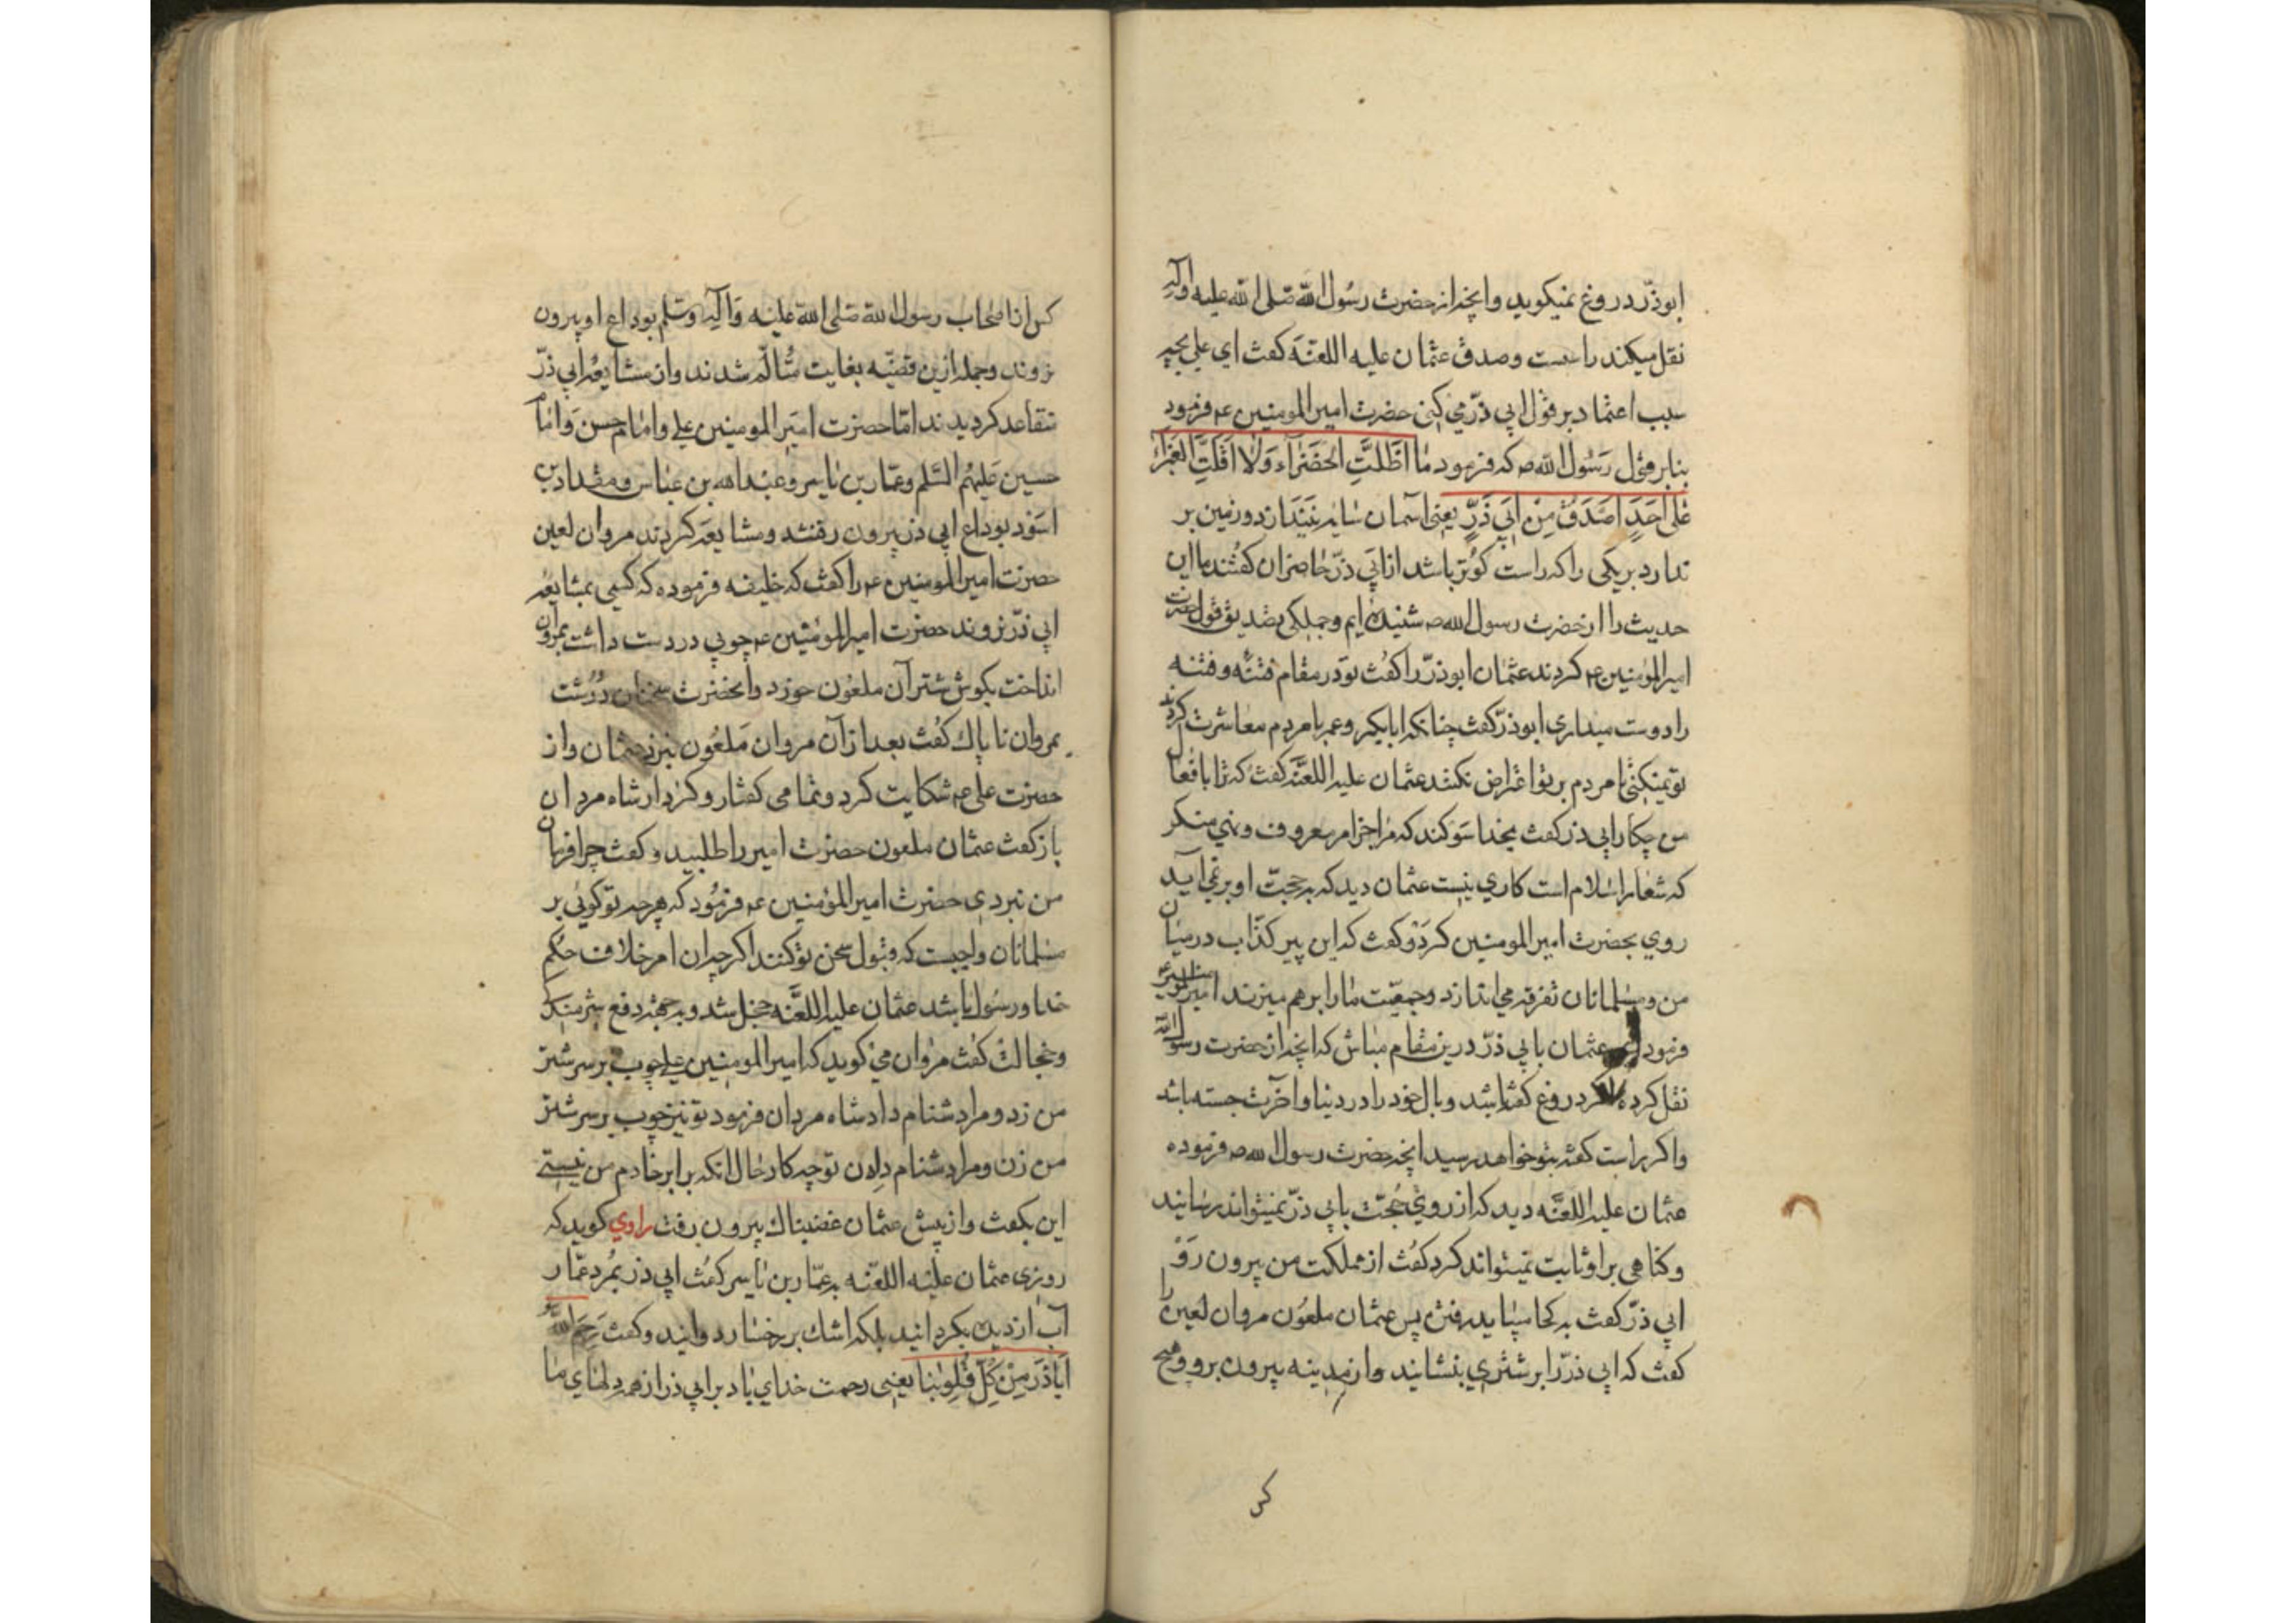 ابوذرّ دروغ نمیکوید وانچه از حضرت رسُول اللّه صَلی اللّه علیه وآله
نقل میکند راست وصدق عثمان علیه اللعنَه کفت ای علی بچه
سبب اعتماد بر قول ابی ذرّ می کنی حضرت امیر المومنین ع فرمود
بنابر قول رَسُول اللّه ص که فرمود مٰا اَظَلَّتِ الخَضرَآء وَلٰا اَقَلَّتِ الغَبرَآءُ
عَلی اَحَدٍ اَصدَقُ مِن اَبی ذَرٍّ یعنی آسمان سایه نیندازد و زمین بر
ندارد بریکی راکه راست کوتر باشد از ابی ذرّ حاضران کفتند ما این
حدیث را از حضرت رسول الله ص شنیده ایم وجملکی تصدیق قول حضرت
امیر المؤمنین ع کردند عثمان ابوذرّ را کفت تو در مقام فتنه و فتنه
را دوست میداری ابوذرّ کفت چنانکه ابابکر وعمر با مردم معاشرت کردند
تو نمیکنی تا مردم بر تو اعتراض نکنند عثمان علیه اللعنَّه کفت که ترا با افعال
من چکار ابی ذر کفت بخدا سَوکند که مرا جز امر بمعروف ونهی منکر
که شعار اسلام است کاری نیست عثمان دید که به حجّت او بر نمی آید
روی بحضرت امیر المومنین کرد و کفت که این پیر کذّاب در میان
من ومسلمانان تفرقه می اندازد وجمعیّت مٰا را بر هم میزند امیر المومنین ع
فرمود ای عثمان با ابی ذرّ درین مقام مباش که انچه از حضرت رسول اللّه
نقل کرده اکر دروغ کفته باشد وبال خود را در دنیا وآخرت جسته باشد
واکر راست کفته بتو خواهد رسید انچه حضرت رسول الله ص فرموده
عثمان علیه اللعنَّه دید که از روی حُجّت با ابی ذرّ نمیتواند رسانید
وکناهی بر او ثابت نمیتواند کرد کفت از مملکت من بیرون رَوْ
ابی ذرّ کفت به کجا میباید رفتن پس عثمان ملعُون مروان لعین را
کفت که ابی ذرّ را بر شتری بنشانید واز مدینه بیرون بر و هیچ
کس
کس از اصحاب رسول اللّه صَلی اللّه علیه وَآله وسَلم بوداع او بیرون
نروند وجمله ازین قضیّه بغایت متُألّم شدند واز مشایعه ابی ذرّ
متقاعد کردیدند امّا حضرت امیَر المومنین علی وامام حسن وَامام
حسین عَلیهُم السَّلم وعمّار بن یاسر وعبد الله بن عباس ومقداد بن
اسوَد بوداع ابی ذر بیرون رفتند ومشایعه کردند مروان لعین
حضرت امیر المومنین ع را کفت که خلیفه فرموده که کسی بمشایعه
ابی ذرّ نروند حضرت امیر المؤمنین ع چوبی در دست داشت بمروان
انداخت بکوش شتر آن ملعُون خورد وانحضرت سخنان دُرُشت
بمروان ناپاک کفُت بعد از آن مروان مَلعُون نزد عثمان واز
حضرت علی ع شکایت کرد وتمامی کفتار وکردار شاه مردان
باز کفت عثمان ملعون حضرت امیر را طلبید وکفت چرا فرمان
من نبردی حضرت امیر المؤمنین ع فرمُود که هر چه تو کوئی بر
مسلمانان واجبست که قبول سخن تو کنند اکر چه ان امر خلاف حُکم
خدا ورسُول باشد عثمان علیه اللعَّنه خجل شد و به جهة دفع شرمندکی
وخجالت کفت مروان می کوید که امیر المومنین علی چوب بر سر شتر
من زد ومرا دشنام داد شاه مردان فرمود تو نیز چوب بر سر شتر
من زن ومرا دشنام دِه ان تو چه کار حال انکه برابر خادم من نیستی
این بکفت واز پیش عثمان غضبناک بیرون رفت راوی کوید که
روزی عثمان علیه اللعّنه به عمّار بن یاسر کفت ابی ذر بمُرد عمّار
آب از دیده بکردانید بلکه اشک بر رخسار دوانید وکفت رَحِمَ اللّهُ
اَباذَر مِنْ کُلِّ قُلُوبنا یعنی رحمت خدای باد بر ابی ذر از همه دلهای مٰا